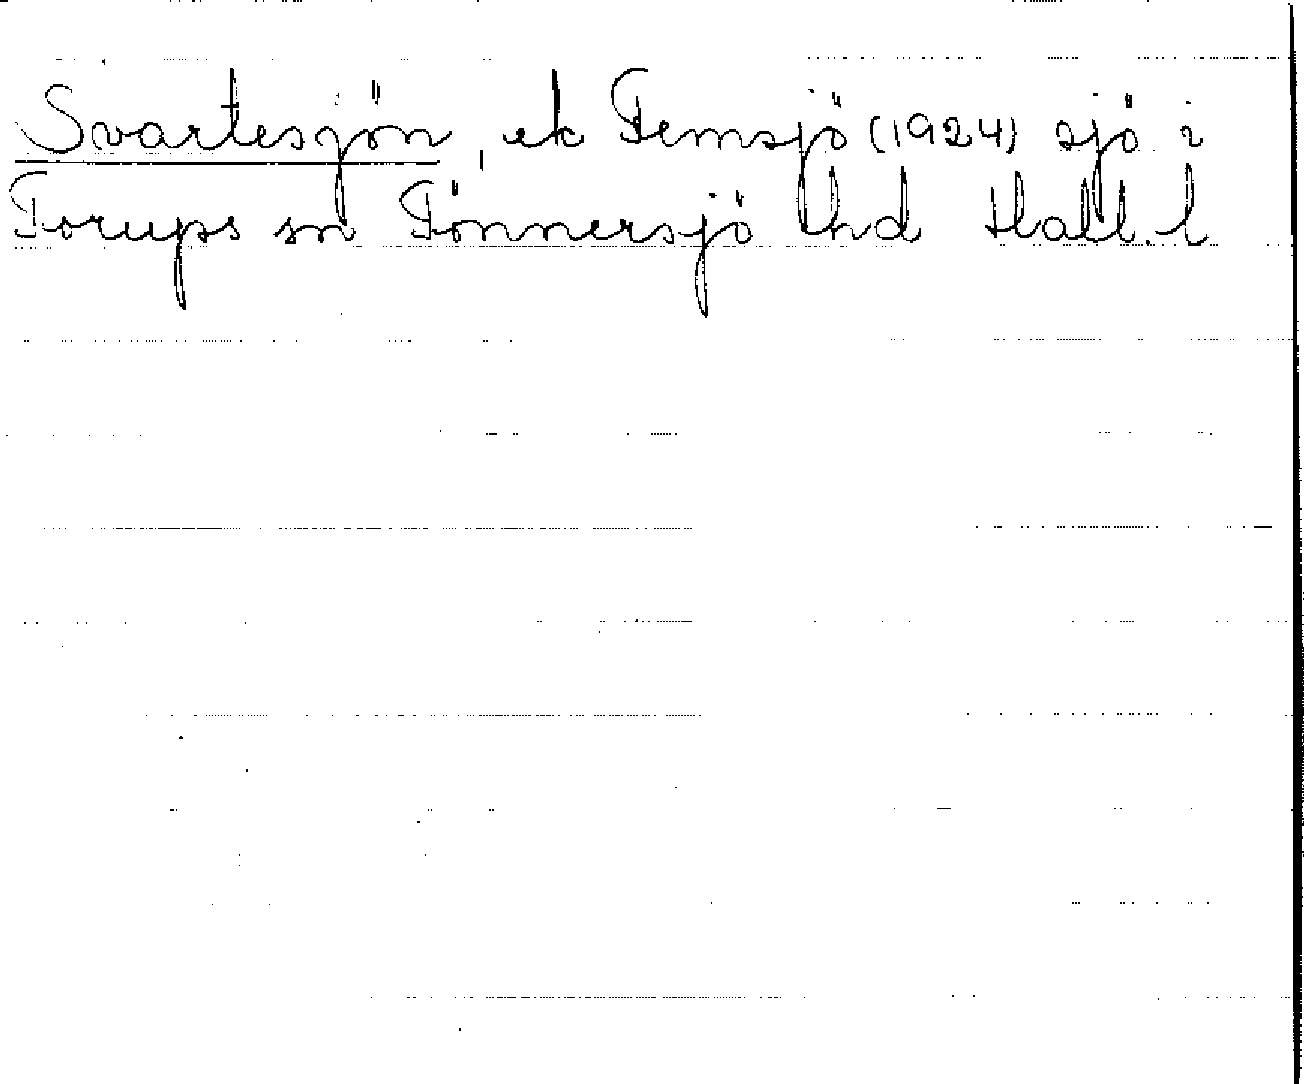 Svartesjön, ek Femsjö (1924) sjö i
Torups sn Tönnersjö hd Hall. l